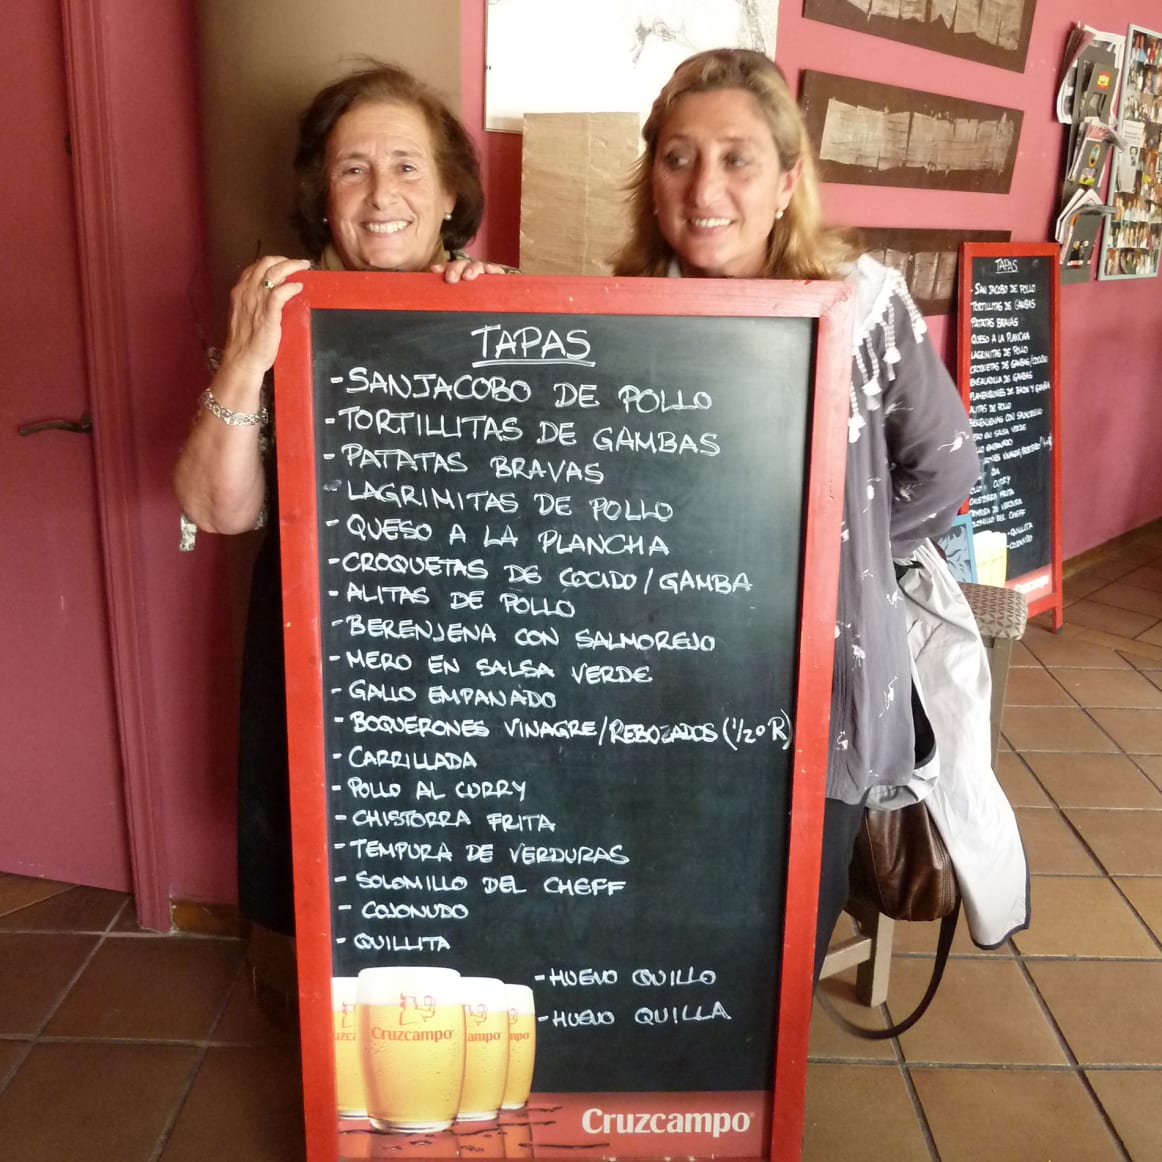 TAPAS
- SANJACOBO DE POLLO
- TORTILLITAS DE GAMBAS
- PATATAS BRAVAS
- LAGRIMITAS DE POLLO
- QUESO A LA PLANCHA
- CROQUETAS DE COCIDO/GAMBA
- ALITAS DE POLLO
- BERENJENA CON SALMOREJO
- MERO EN SALSA VERDE
- GALLO EMPANADO
- BOQUERONES VINAGRE/REBOZADOS (1/2º R)
- CARRILLADA
- POLLO AL CURRY
- CHISTORRA FRITA
- TEMPURA DE VERDURAS
- SOLOMILLO DEL CHEFF
- COJONUDO
- QUILLITA
- HUEVO QUILLO
- HUEVO QUILLA
Cruzcampo
ampo
mpo
Cruzcampo
TAPAS
- SAN JACOBO DE POLLO
TORTILLITAS DE GAMBAS
PATATAS BRAVAS
QUESO A LA PLANCHA
LAGRIMITAS DE POLLO
CROQUETAS DE GAMBAS/COCIDO
ENSALADILLA DE GAMBAS
FLAMENQUINES DE BACON Y GAMBA
ALITAS DE POLLO
BERENJENAS CON SALMOREJO
MERO EN SALSA VERDE
CURRY
CHISTORRA FRITA
TEMPURA DE VERDURA
SOLOMILLO DEL CHEFF
- QUILLITA
- COJONUDO
Cruzcampo